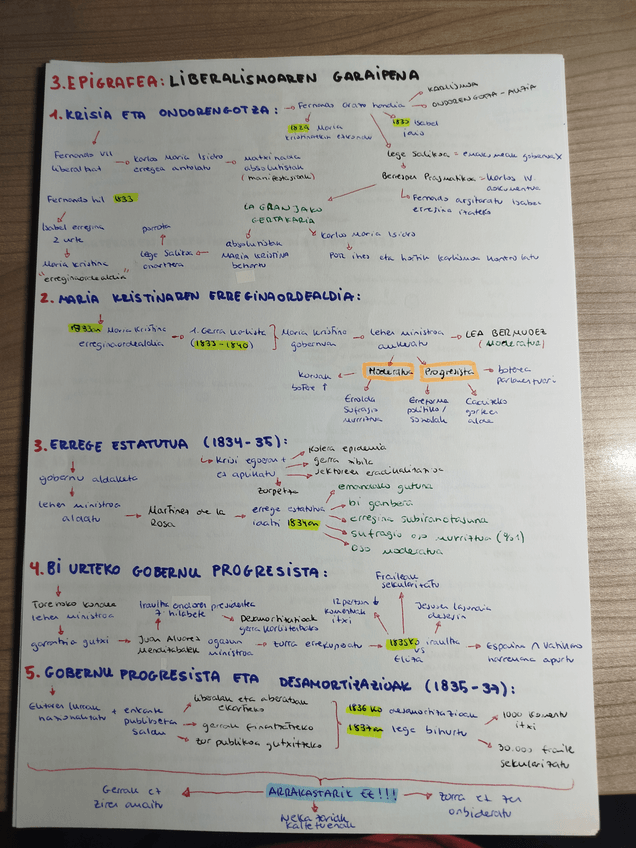 3. EPIGRAFEA: LIBERALISMOAREN GARAIPENA
1. KRISIA ETA ONDORENGOTZA:
Fernando orato hondia
KARLISMOA
ONDORENGOTA-AUZIA
1829 Maria
kristinarekin ezkondu
1830 Isabel
jaio
Fernando VII
liberalxat
Karlos Maria Isidro
erregea antolatu
matxinada
absolutistak
(manifestazioak)
Lege Salikoa = emakumeak gobernua X
Berrespen Pragmatikoa = Karlos IV.
dokumentua
Fernando argitaratu Isabel
erregina izateko
Fernando hil 1833
LA GRANJAKO
GERTAKARIA
Isabel erregina
2 urte
porrota
Karlos Maria Isidro
Maria Kristina
"erreginaordealdia"
Lege Salikoa
onartzera
absolutistak
MARIA KRISTINA
behartu
Por ihes eta hortik karlismoa kontrolatu
2. MARIA KRISTINAREN ERREGINAORDEALDIA:
1833n Maria Kristina
erreginaordealdia
1. Gerra Karlista
(1833-1840)
Maria Kristina
gobernuan
lehen ministroa
aukeratu
LEA BERMUDEZ
(Moderatua)
Koroak
botere ↑
Moderatua
Progresista
boterea
parlamentuari
Errolda
Sufragio
murriztua
Erreforma
politiko/
sozialak
3. ERREGE ESTATUTUA (1834-35):
gobernu aldaketa
Krisi egoeran +
ez aplikatu
Kolera epidemia
gerra zibila
sektoreen erradikalizazioa
zorpetza
lehen ministroa
aldatu
Martinez de la
Rosa
errege estatutua
idatzi 1834an
emandako gutuna
bi ganbera
erregina subiranotasuna
sufragio oso murriztua (%1)
oso moderatua
4. BI URTEKO GOBERNU PROGRESISTA:
Torenoko kondea
lehen ministroa
Iraultza ondoren presidentea
7 hilabete
Desamortizazioak
gerra karlistarako
12 pertsona
komentuak
itxi
Fraileak
sekularizatu
Jesusen lagundia
desegin
garrantzia gutxi
Juan Alvarez
Mendizabalek
ogasun
ministroa
zorra errekuperatu
1835ko iraultza
vs
Eliza
Espainia Λ Vatikano
harremana apurtu
5. GOBERNU PROGRESISTA ETA DESAMORTIZAZIOAK (1835-37):
Elizaren lurrak
nazionalizatu
+
enkante
publikoetan
saldu
liberalak eta aberatsak
ekartzeko
gerrak finantzatzeko
zor publikoa gutxitzeko
1836ko desamortizazioak
1837an lege bihurtu
1000 komentu
itxi
30.000 fraile
sekularizatu
Gerrak ez
ziren amaitu
ARRAKASTARIK EZ!!!
Nekazariak
kaltetuenak
zorra ez zen
orbideratu